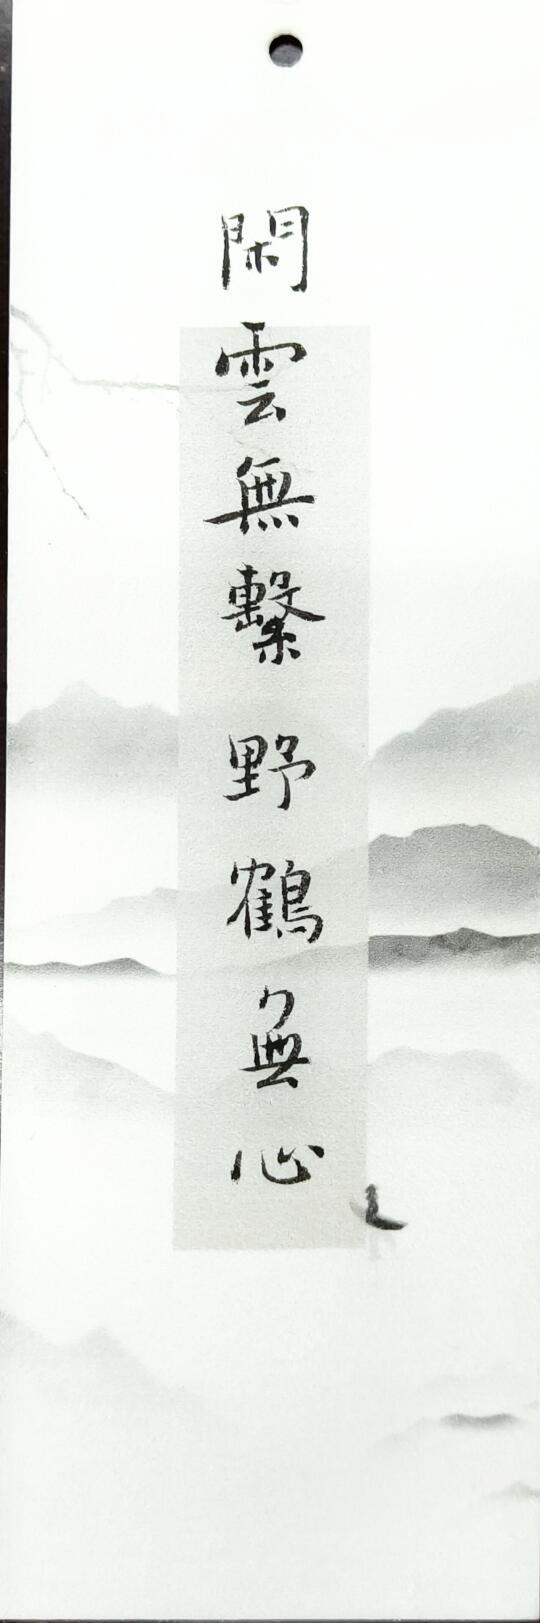 閑雲無繫野鶴無心